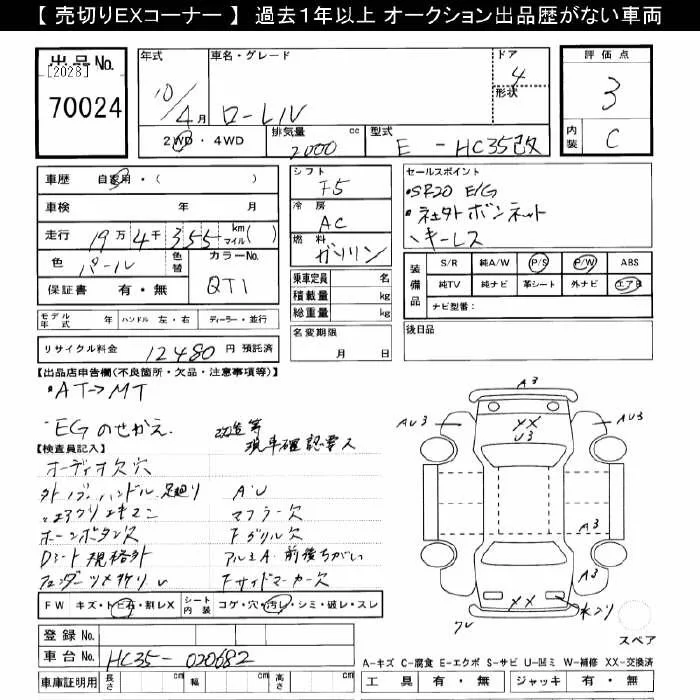 【 売切りEXコーナー 】 過去1年以上 オークション出品歴がない車両
出品No. [2028] 70024
年式 10/4月
車名・グレード ローレル
ドア 4 形状
評価点 3
内装 C
2WD・4WD
排気量 2000 cc
型式 E-HC35改
車歴 自家用・( )
車検 年 月
走行 19万4千355 km マイル( )
色 パール 色替 カラーNo. QT1
保証書 有・無
シフト F5
冷房 AC
燃料 ガソリン
乗車定員 名
積載量 kg
総重量 kg
セールスポイント
・SR20 E/G
・社外ボンネット
・キーレス
装備品 S/R 純A/W P/S P/W ABS
純TV 純ナビ 革シート 外ナビ エアB
ナビ型番:
モデル年式 年 ハンドル 左・右 ディーラー・並行
名変期限 月 日
後日品
リサイクル料金 12480 円 預託済
【出品店申告欄(不良箇所・欠品・注意事項等)】
・AT→MT
・EG のせかえ 改造等 現車確認要ス
【検査員記入】
オーディオ欠穴
外ノブ、ハンドル、足廻り A.U
エアクリ エキマニ マフラー欠
ホーンボタン欠 Fグリル欠
Dシート規格外 アルミA・前後ちがい
フェンダーツメ折り Fサイドマーカー欠
FW キズ・ト・石・割レX シート内装 コゲ・穴・汚レ・シミ・破レ・スレ
登録No.
車台No. HC35-020682
車庫証明用 長さ cm 幅 cm 高さ cm
A3
AU3 XX AU3
U3
A3
A3
XX
スペア
A-キズ C-腐食 E-エクボ S-サビ U-凹ミ W-補修 XX-交換済
工具 有・無 ジャッキ 有・無